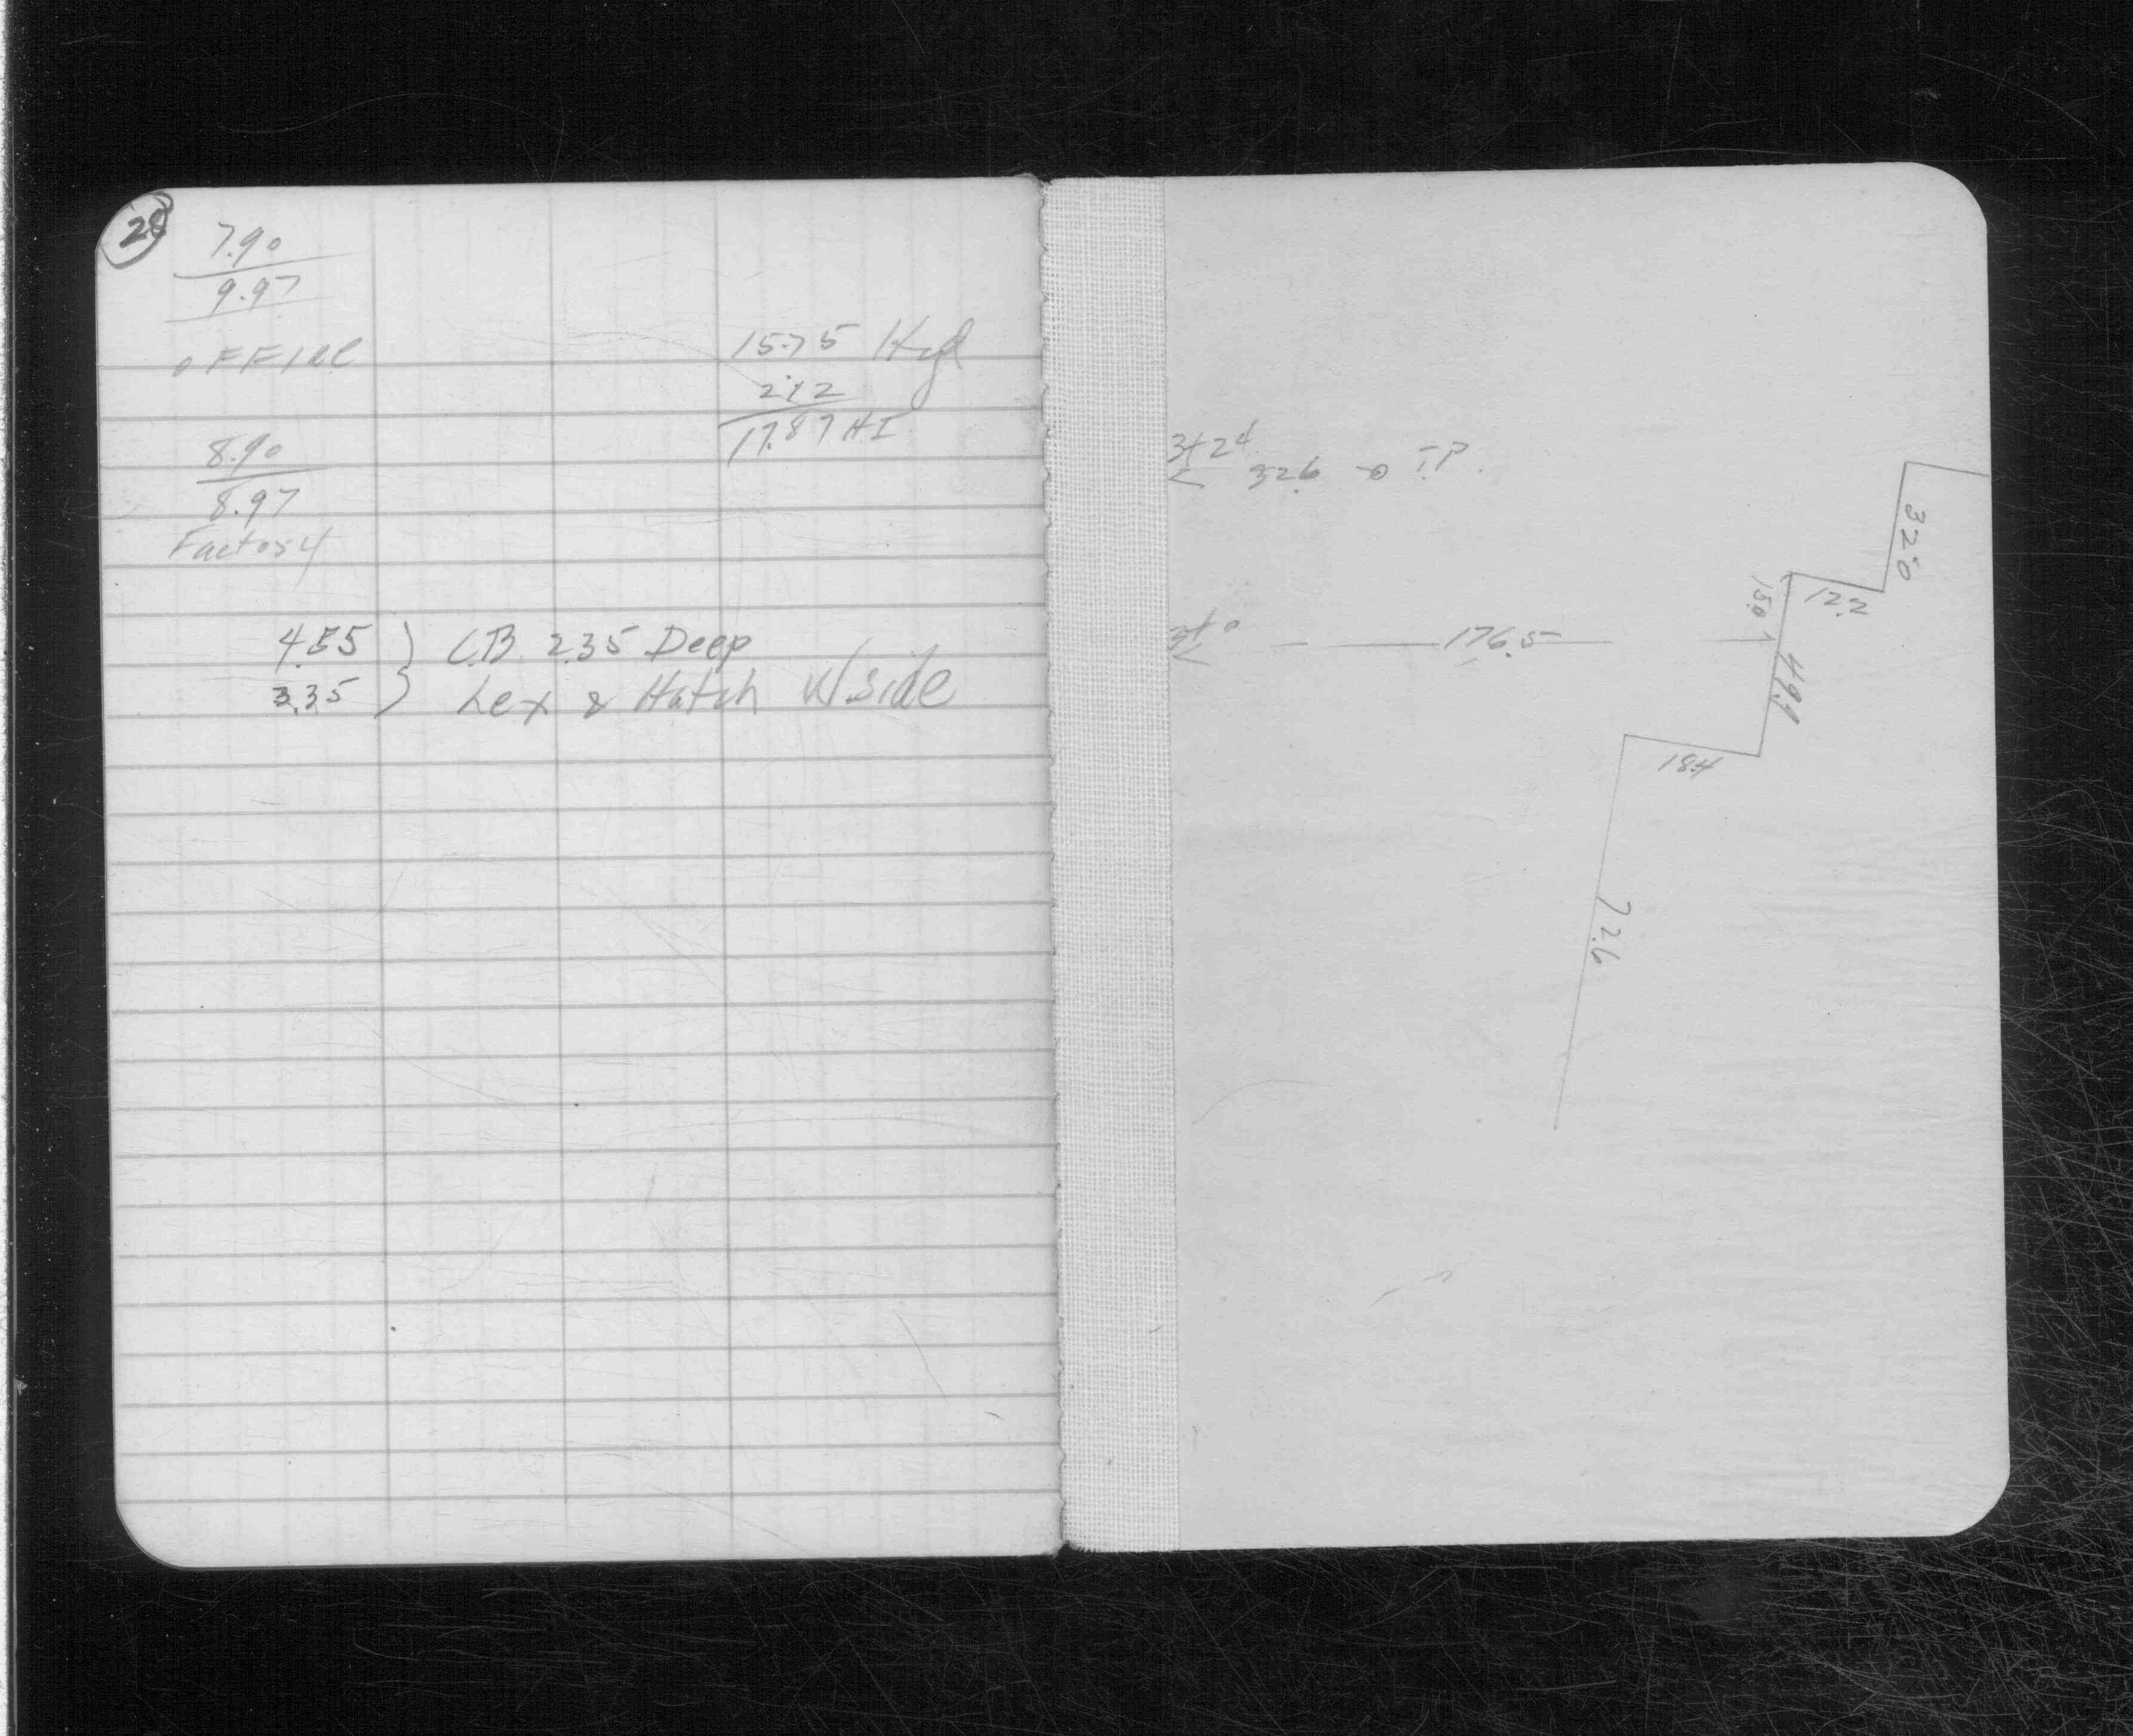 28
7.90
9.97
OFFICE
15.75 Hyd
2.12
17.87 HI
8.90
8.97
Factory
4.55 } C.B. 2.35 Deep
3.35 } Lex & Hatch W/side
3+24
< 32.6 -o I.P.
32.0
12.2
15.0
3+0
< 176.5
49.9
18.4
72.6